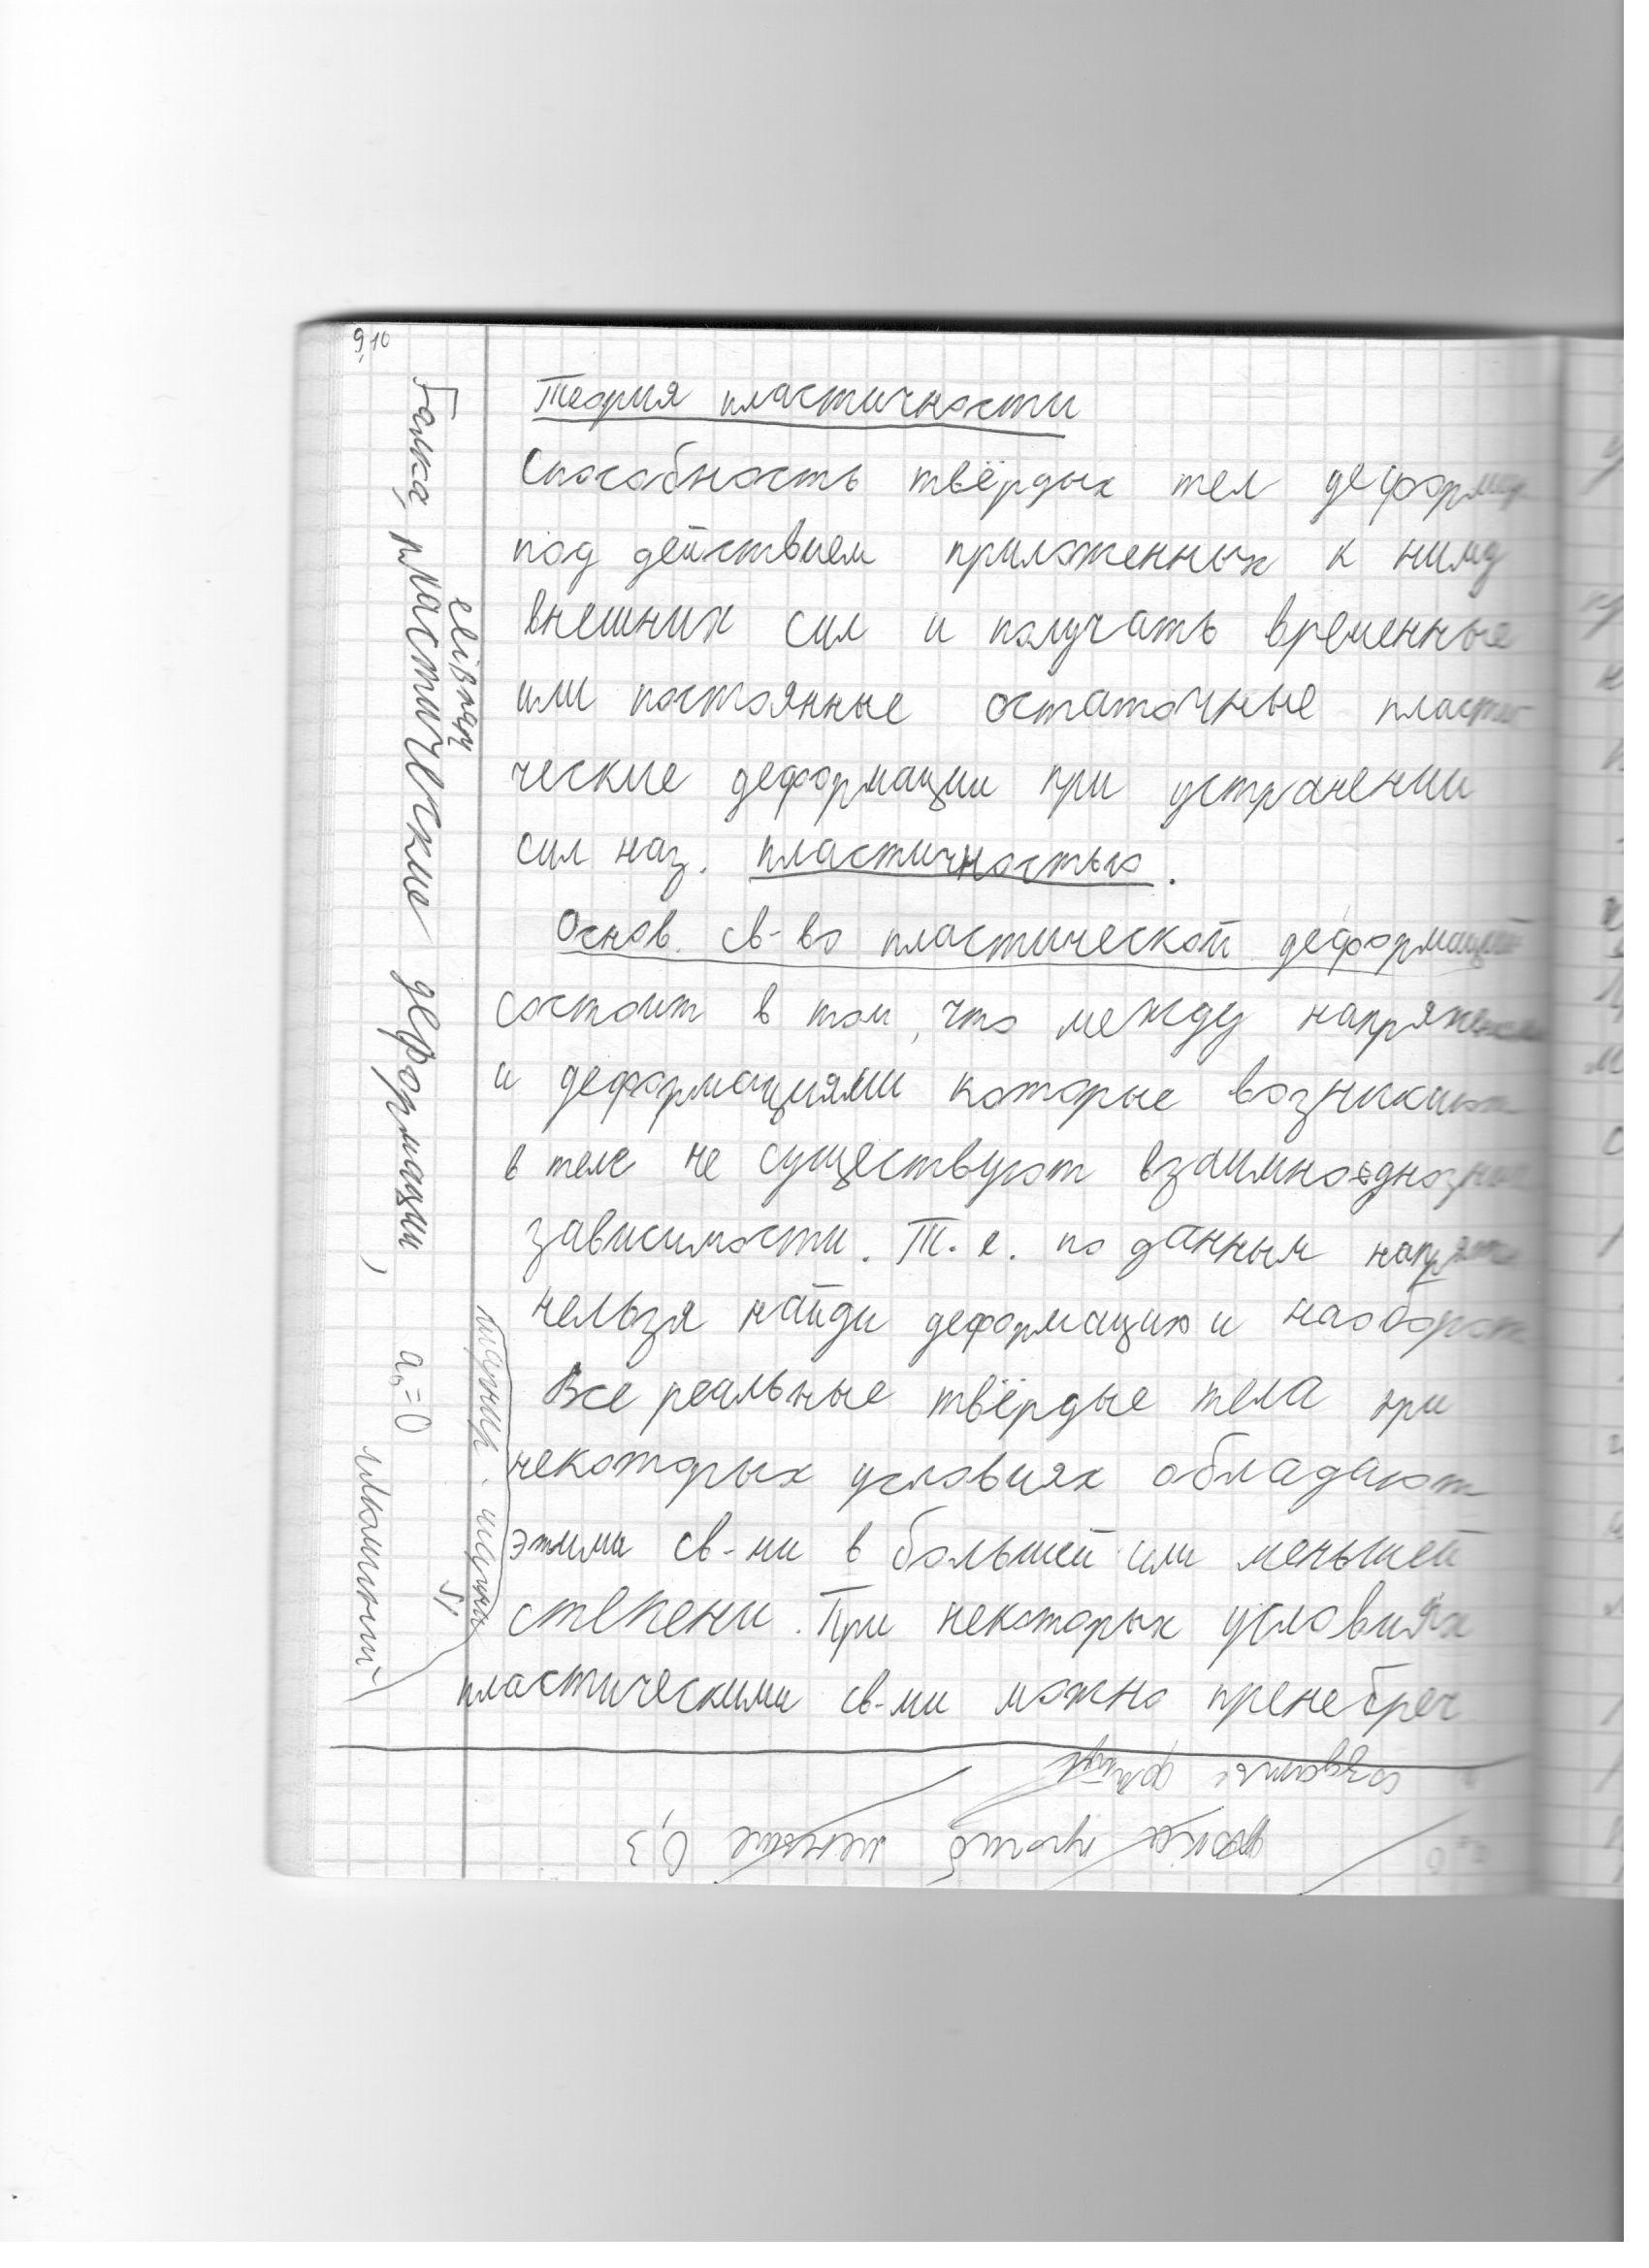 9,10
Теория пластичности
Способность твёрдых тел деформир
под действием приложенных к нему
внешних сил и получать временные
или постоянные остаточные пласти
ческие деформации при устранении
сил наз. пластичностью.
Основ. св-во пластической деформаций
состоит в том, что между напряжениями
и деформациями которые возникают
в теле не существуют взаимнооднозн
зависимости. Т.е. по данным напряже
нельзя найди деформацию и наоборот
Все реальные твёрдые тела при
некоторых условиях обладают
этими св-ми в большей или меньшей
степени. При некоторых условиях
пластическими св-ми можно пренебреч
Балка, пластические деформации, a₀=0
меньше 0,3